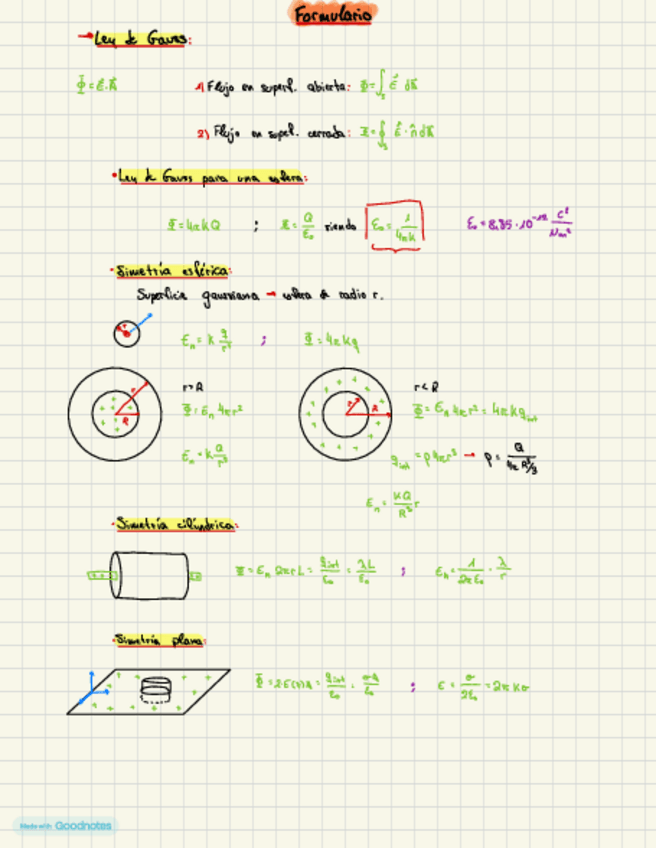 Formulario
→ Ley de Gauss:
Φ = E⃗·A⃗
1) Flujo en superf. abierta: Φ = ∫s E⃗ dA⃗
2) Flujo en supef. cerrada: Φ = ∮s E⃗ · n̂ dA
• Ley de Gauss para una esfera:
Φ = 4πkQ ; Φ = Q/ε₀ siendo ε₀ = 1/4πk ε₀ = 8,85·10⁻¹² C²/Nm²
• Simetría esférica:
Superficie gaussiana → esfera de radio r.
r
Eₙ = k q/r² ; Φ = 4πkq
r > R
r
R
Φ = Eₙ 4πr²
Eₙ = k Q/r²
r < R
r
R
Φ = Eₙ 4πr² = 4πk qint
→ ρ = Q/(4π R³/3)
Eₙ = KQ/R³ r
• Simetría cilíndrica:
Φ = Eₙ 2πrL = qint/ε₀ = λL/ε₀ ; Eₙ = 1/2πε₀ · λ/r
• Simetría plana:
qint/ε₀ · σA/ε₀ ; E = σ/2ε₀ = 2πKσ
Made with Goodnotes